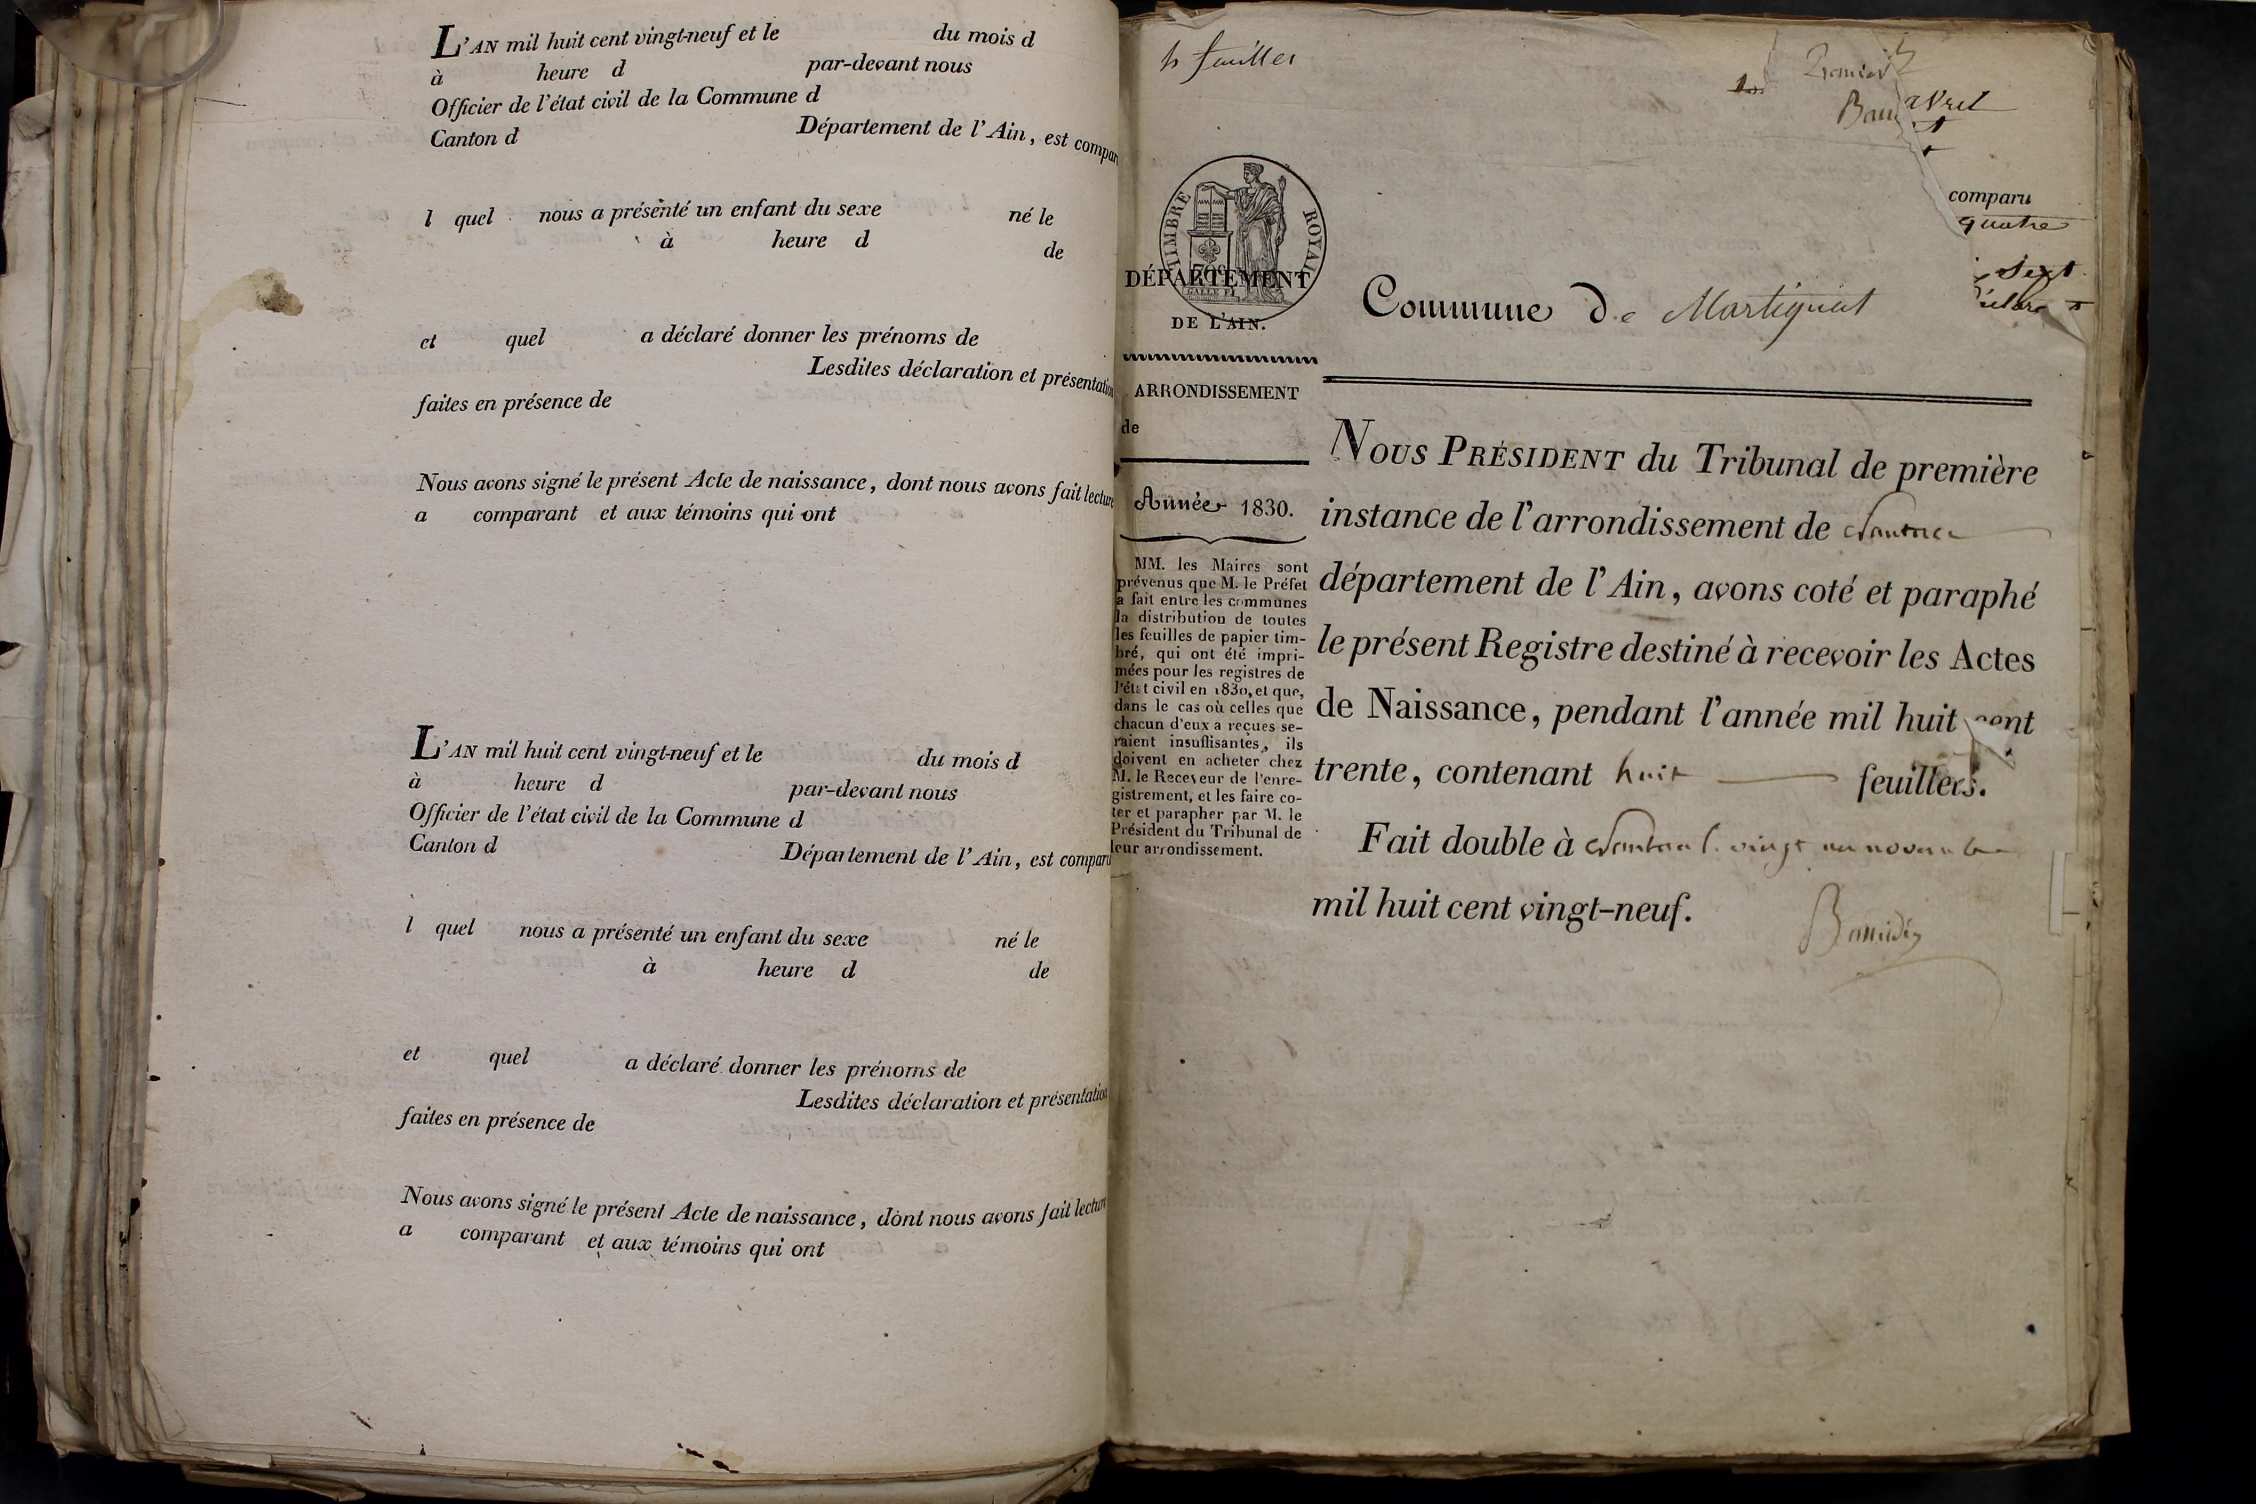 L'AN mil huit cent vingt-neuf et le du mois d
à heure d par-devant nous
Officier de l'état civil de la Commune d
Canton d Département de l'Ain, est compar
l quel nous a présenté un enfant du sexe né le
à heure d de
et quel a déclaré donner les prénoms de
Lesdites déclaration et présentation
faites en présence de
Nous avons signé le présent Acte de naissance, dont nous avons fait lecture
a comparant et aux témoins qui ont
L'AN mil huit cent vingt-neuf et le du mois d
à heure d par-devant nous
Officier de l'état civil de la Commune d
Canton d Département de l'Ain, est comparu
l quel nous a présenté un enfant du sexe né le
à heure d de
et quel a déclaré donner les prénoms de
Lesdites déclaration et présentation
faites en présence de
Nous avons signé le présent Acte de naissance, dont nous avons fait lecture
a comparant et aux témoins qui ont
feuilles
Premier
avril
comparu
quatre
sept
TIMBRE ROYAL
70c
GALLE Ft
DÉPARTEMENT
DE L'AIN.
Commune de Martignat
ARRONDISSEMENT
de
Année 1830.
MM. les Maires sont
prévenus que M. le Préfet
a fait entre les communes
la distribution de toutes
les feuilles de papier tim-
bré, qui ont été impri-
mées pour les registres de
l'état civil en 1830, et que,
dans le cas où celles que
chacun d'eux a reçues se-
raient insuffisantes, ils
doivent en acheter chez
M. le Receveur de l'enre-
gistrement, et les faire co-
ter et parapher par M. le
Président du Tribunal de
leur arrondissement.
NOUS PRÉSIDENT du Tribunal de première
instance de l'arrondissement de Nantua
département de l'Ain, avons coté et paraphé
le présent Registre destiné à recevoir les Actes
de Naissance, pendant l'année mil huit cent
trente, contenant huit feuillets.
Fait double à Nantua le vingt un novembre
mil huit cent vingt-neuf.